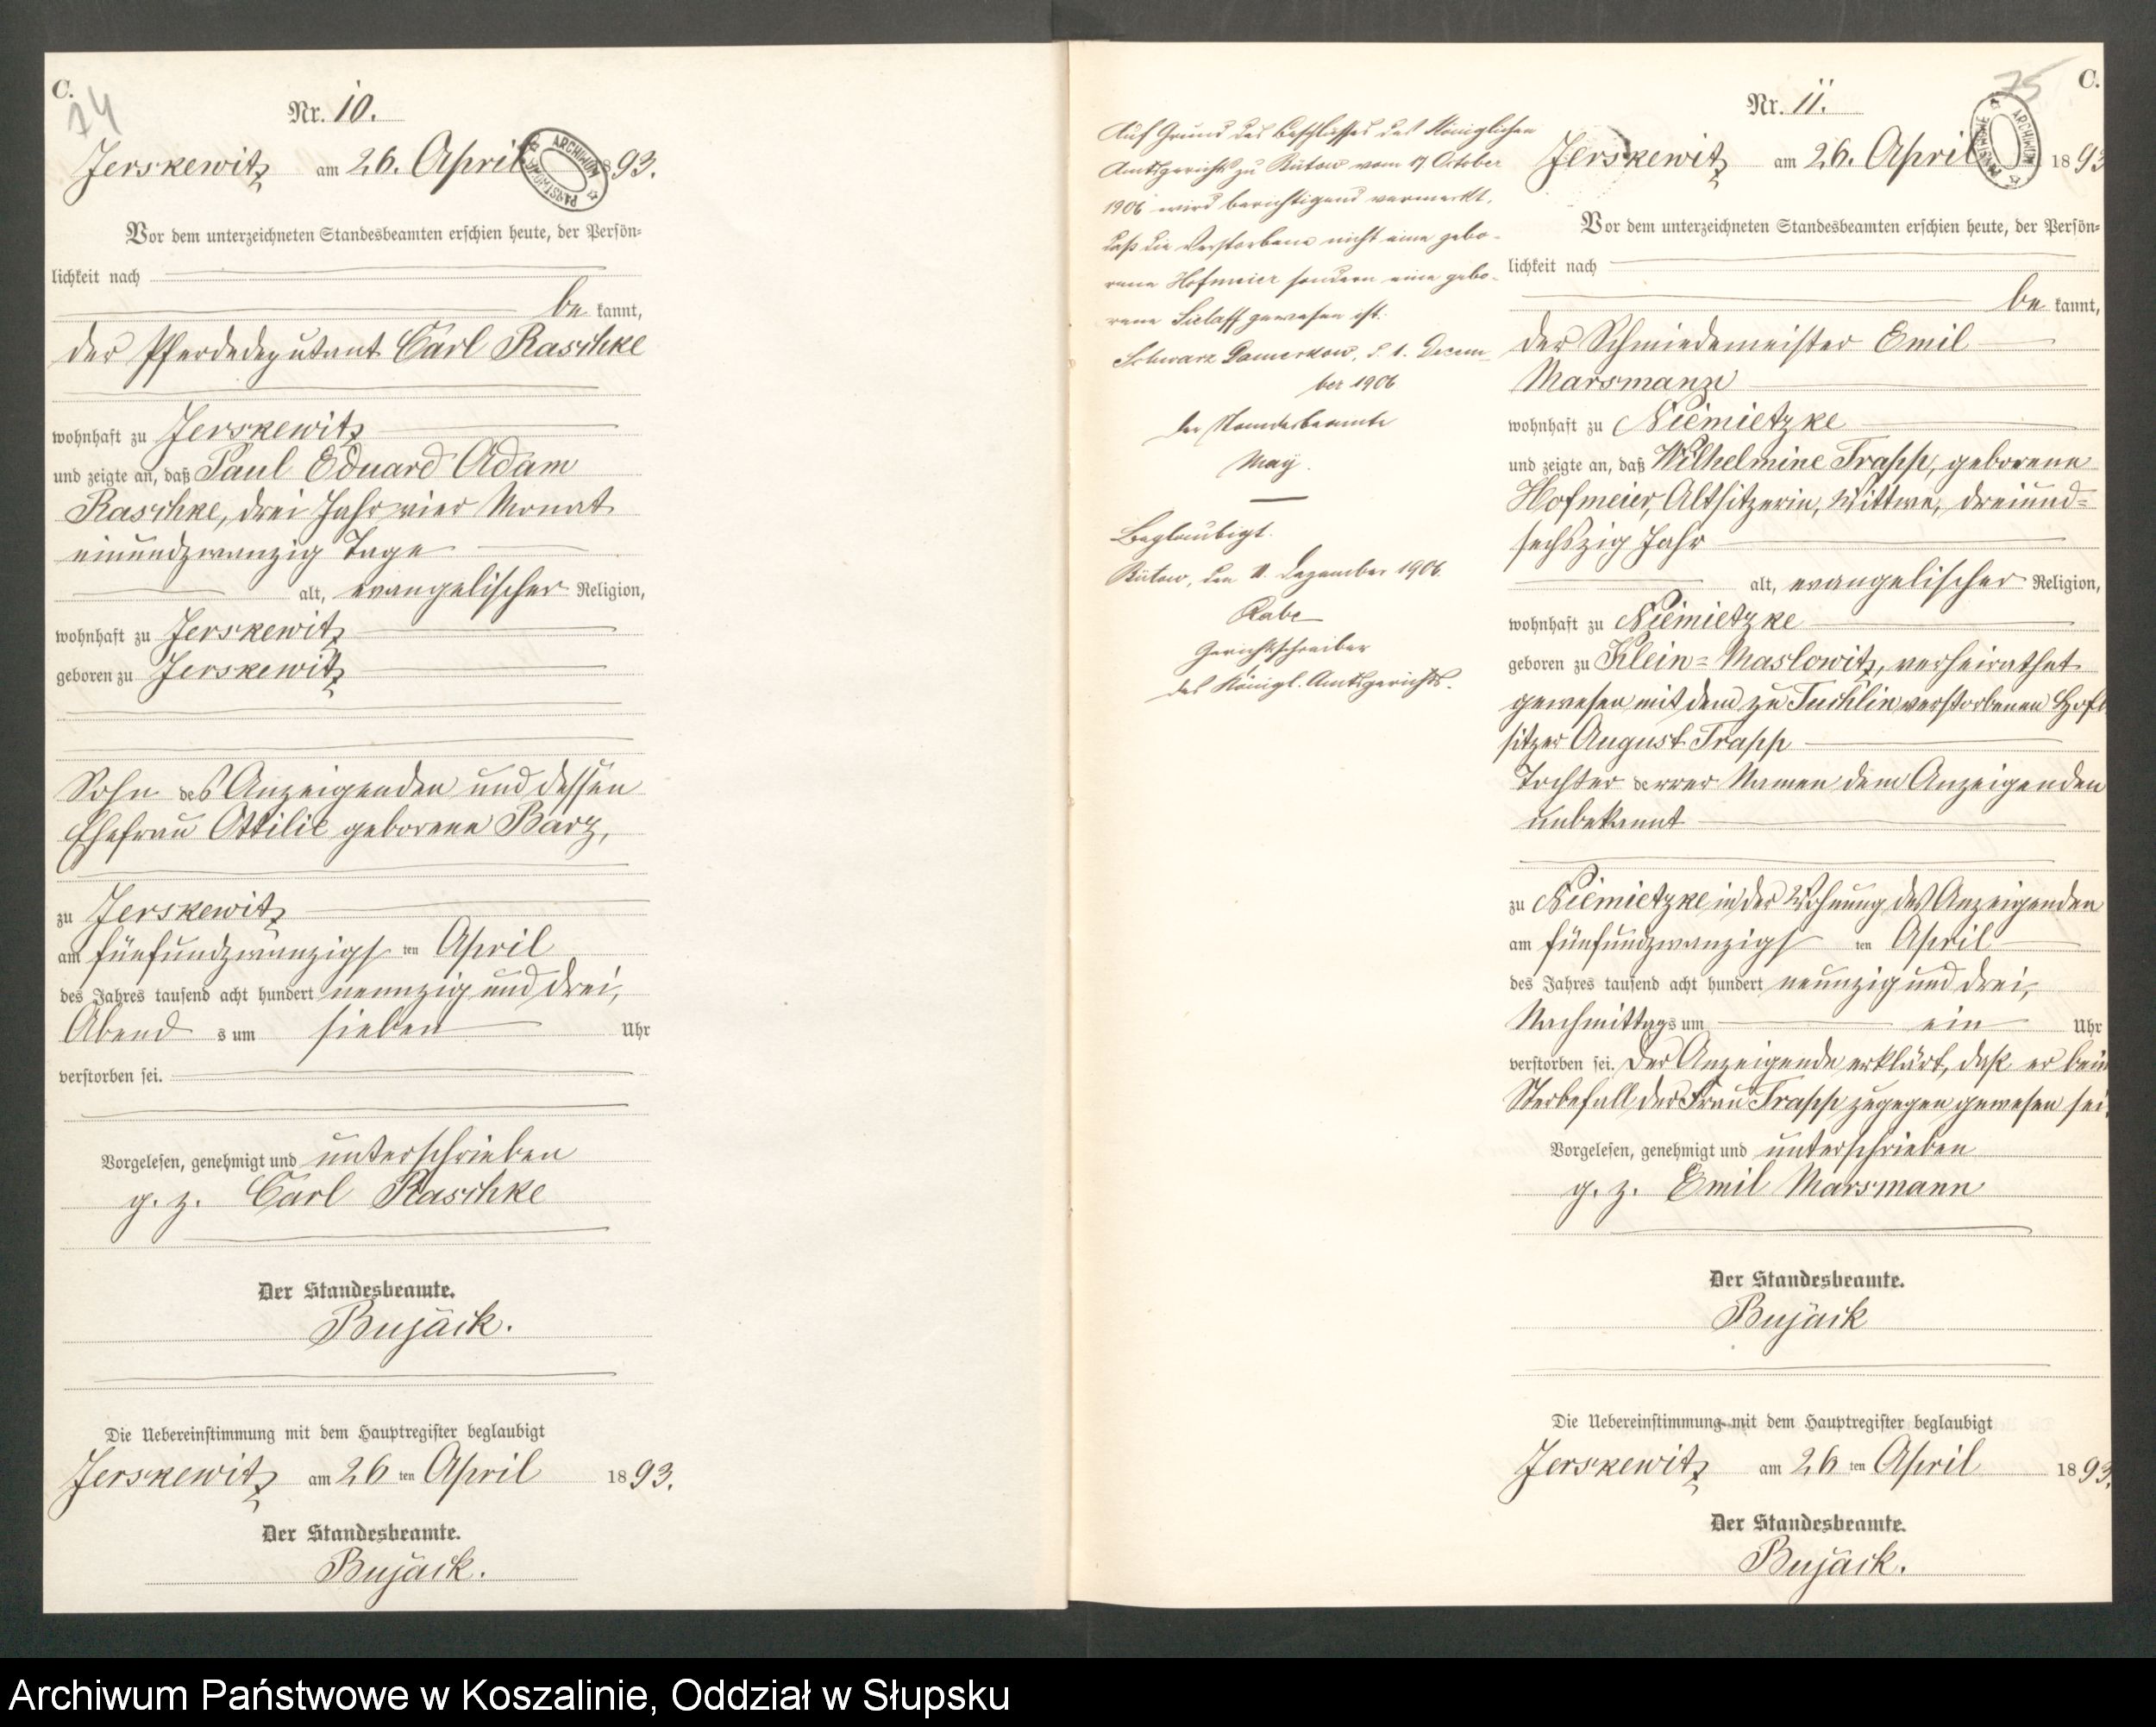 C.
74
Nr. 10.
Jerskewitz am 26. April 1893.
Vor dem unterzeichneten Standesbeamten erschien heute, der Persön-
lichkeit nach
be kannt,
der Pferdedeputant Carl Raschke
wohnhaft zu Jerskewitz
und zeigte an, daß Paul Eduard Adam
Raschke, drei Jahr vier Monat
einundzwanzig Tage
alt, evangelischer Religion,
wohnhaft zu Jerskewitz
geboren zu Jerskewitz
Sohn des Anzeigenden und dessen
Ehefrau Ottilie geborene Barz,
zu Jerskewitz
am fünfundzwanzigsten April
des Jahres tausend acht hundert neunzig und drei,
Abend s um sieben Uhr
verstorben sei.
Vorgelesen, genehmigt und unterschrieben
g. z. Carl Raschke
Der Standesbeamte.
Bujack.
Die Uebereinstimmung mit dem Hauptregister beglaubigt
Jerskewitz am 26 ten April 1893.
Der Standesbeamte.
Bujack.
Auf Grund des Beschlusses des Königlichen
Amtsgerichts zu Bütow vom 17 October
1906 wird berichtigend vermerkt,
daß die Verstorbene nicht eine gebo-
rene Hofmeier sondern eine gebo-
rene Sielaff gewesen ist.
Schwarz Damerkow, d. 1. Decem-
ber 1906
Der Standesbeamte
May.
Beglaubigt.
Bütow, den 11. Dezember 1906.
Rabe
Gerichtsschreiber
des Königl. Amtsgerichts.
75
C.
Nr. 11.
Jerskewitz am 26. April 1893
Vor dem unterzeichneten Standesbeamten erschien heute, der Persön-
lichkeit nach
be kannt,
der Schmiedemeister Emil
Marsmann
wohnhaft zu Niemietzke
und zeigte an, daß Wilhelmine Trapp, geborene
Hofmeier, Altsitzerin, Wittwe, dreiund-
sechszig Jahr
alt, evangelischer Religion,
wohnhaft zu Niemietzke
geboren zu Klein-Maslowitz, verheirathet
gewesen mit dem zu Tuchlin verstorbenen Hofbe
sitzer August Trapp
Tochter derer Namen dem Anzeigenden
unbekannt
zu Niemietzke in der Wohnung des Anzeigenden
am fünfundzwanzigsten April
des Jahres tausend acht hundert neunzig und drei,
Nachmittags um ein Uhr
verstorben sei. Der Anzeigende erklärt, daß er beim
Sterbefall der Frau Trapp zugegen gewesen sei.
Vorgelesen, genehmigt und unterschrieben
g. z. Emil Marsmann
Der Standesbeamte.
Bujack
Die Uebereinstimmung mit dem Hauptregister beglaubigt
Jerskewitz am 26 ten April 1893.
Der Standesbeamte.
Bujack.
ARCHIWUM PAŃSTWOWE
Archiwum Państwowe w Koszalinie, Oddział w Słupsku